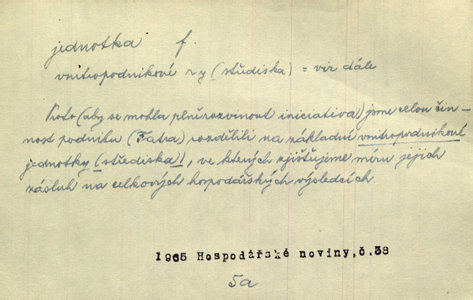 jednotka f.
vnitropodnikové r~y (střediska) = viz dále
Proto (aby se mohla plně rozvinout iniciativa) jsme celou čin-
nost podniku (Fatra) rozdělili na základní vnitropodnikové
jednotky (střediska), ve kterých zjišťujeme míru jejich
zásluh na celkových hospodářských výsledcích.
1965 Hospodářské noviny,č.38
5a